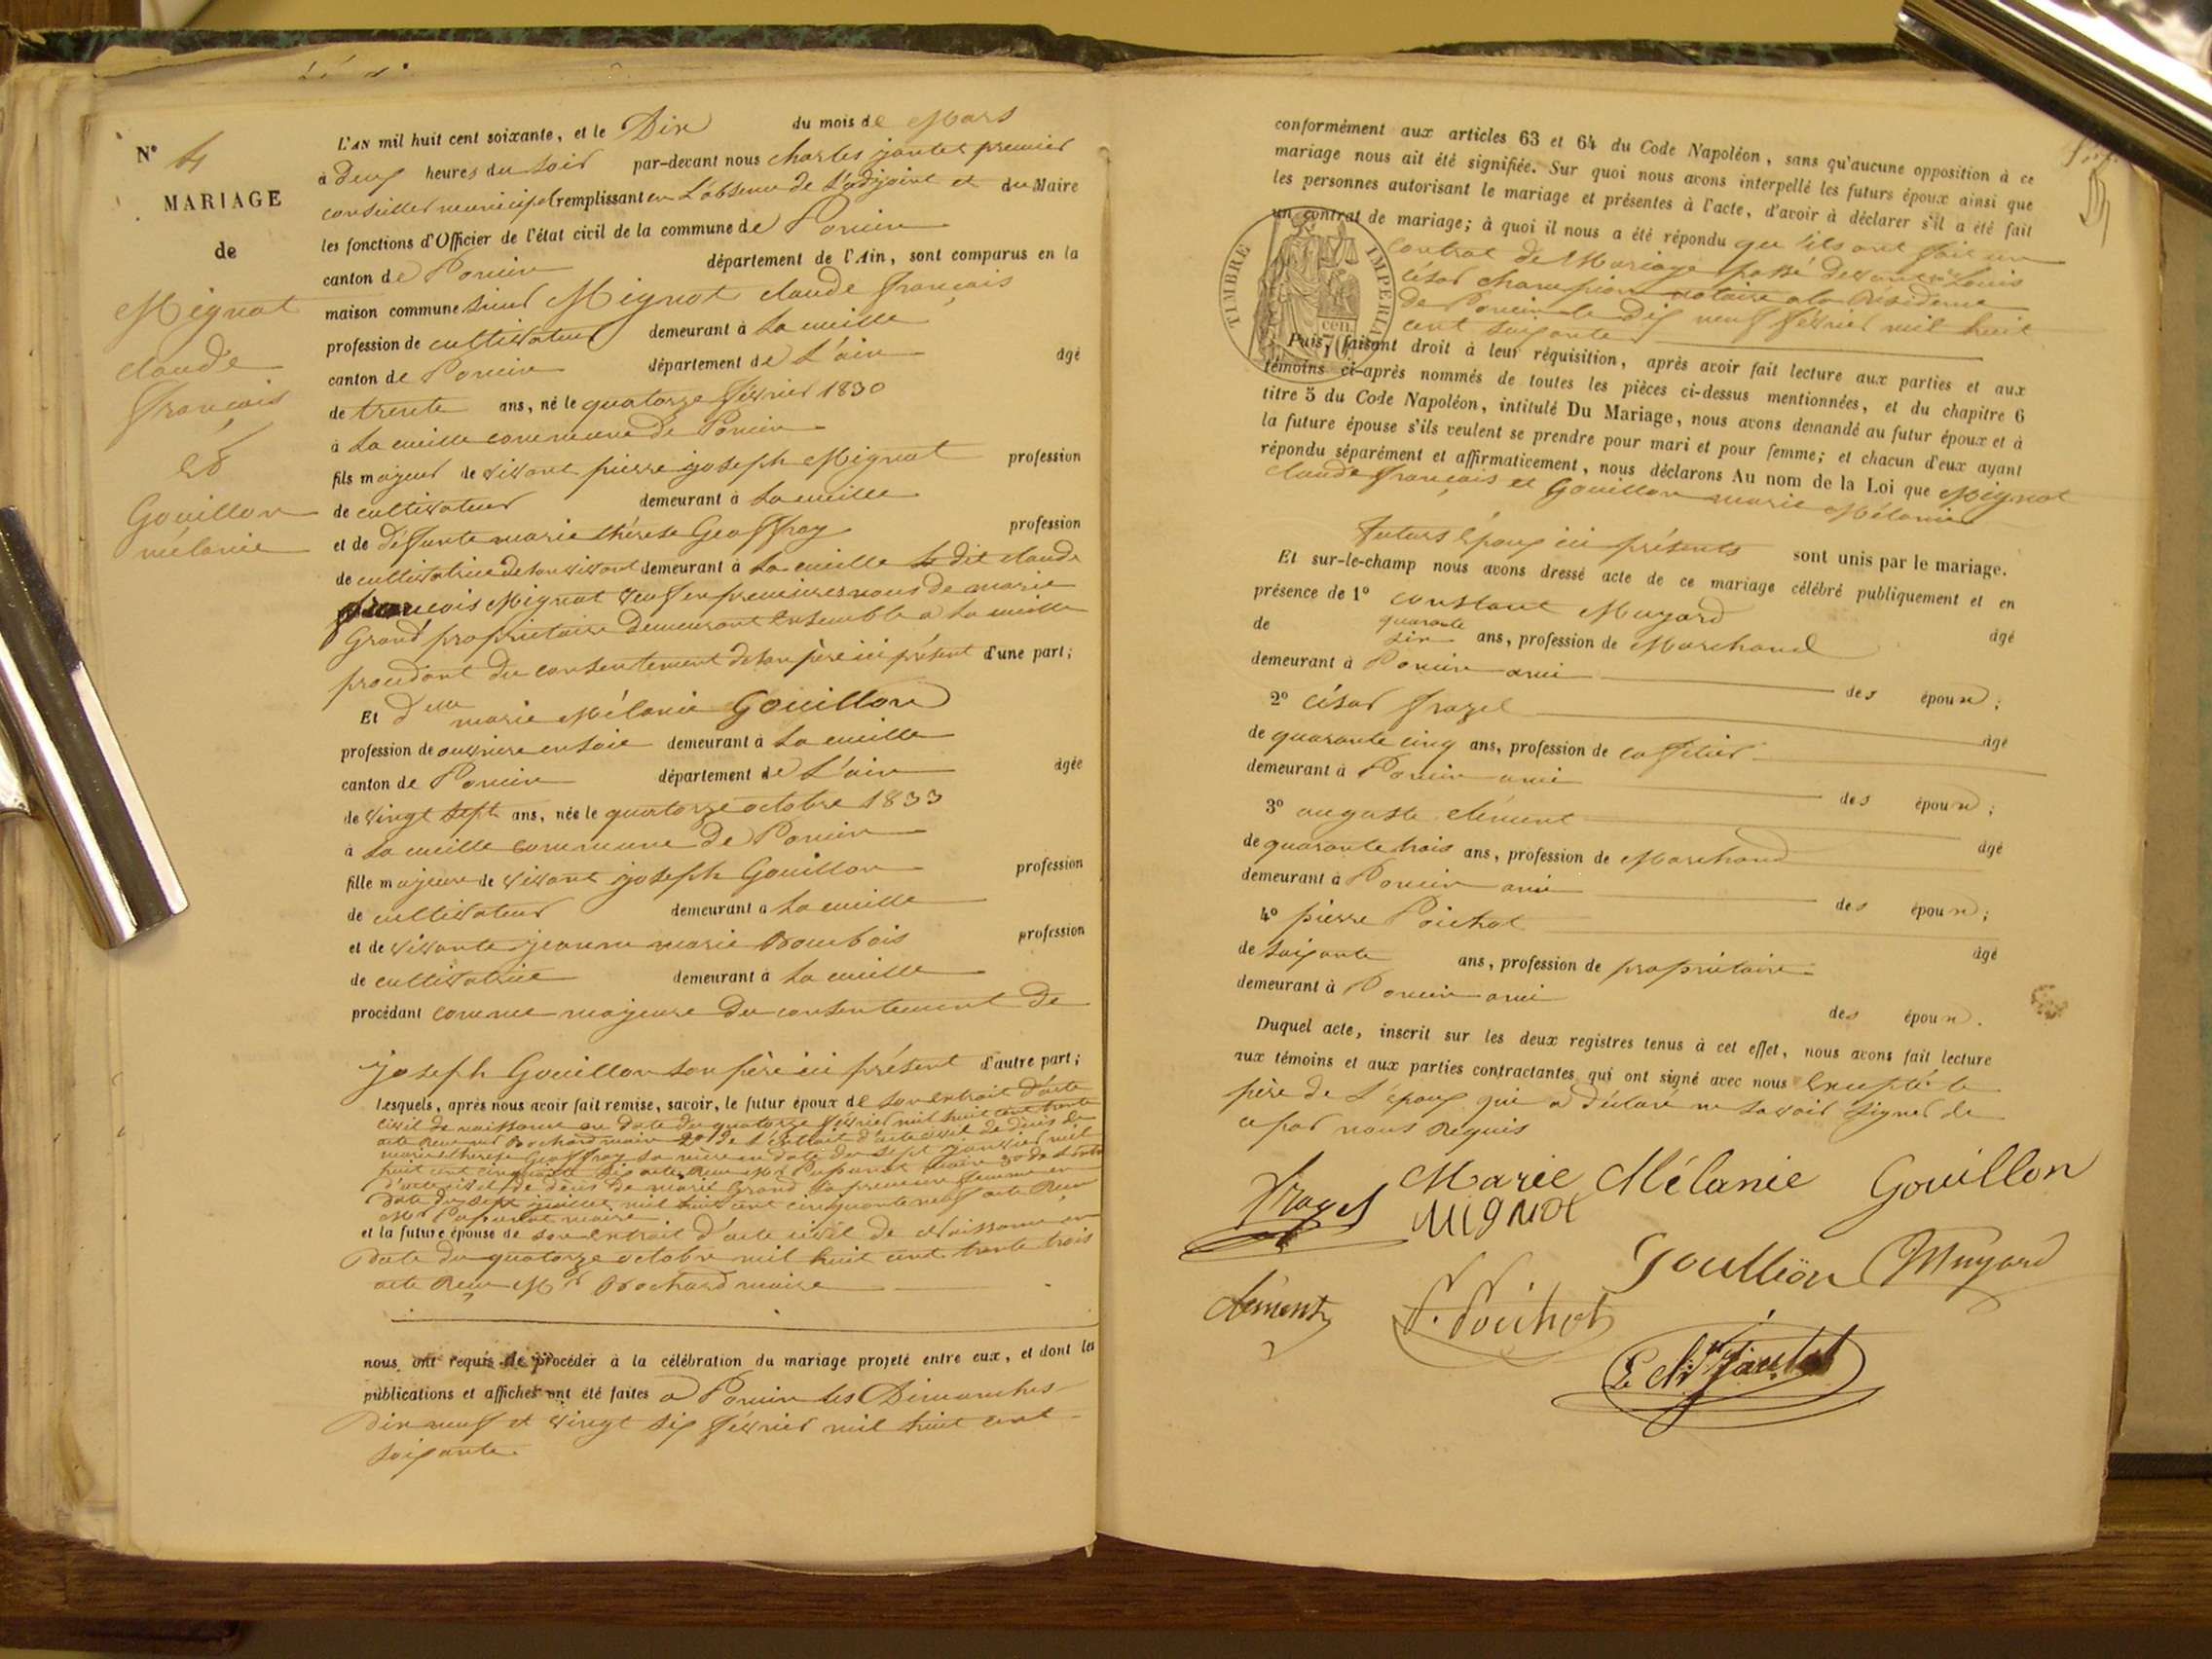 N° 4
MARIAGE
de
Mignot
claude
français
et
Gouillon
mélanie
L'AN mil huit cent soixante, et le Dix du mois de Mars
à Deux heures du soir par-devant nous charles jantet premier
conseiller municipal remplissant en L'absence de L'adjoint et du Maire
les fonctions d'Officier de l'état civil de la commune de Poncin
canton de Poncin département de l'Ain, sont comparus en la
maison commune sieur Mignot claude français
profession de cultivateur demeurant à La cueille
canton de Poncin département de L'ain âgé
de trente ans, né le quatorze février 1830
à La cueille commune de Poncin
fils majeur de vivant pierre joseph Mignot profession
de cultivateur demeurant à La cueille
et de défunte marie thérèse Geoffray profession
de cultivatrice de son vivant demeurant à La cueille Le dit claude
français Mignot veuf en premières noces de marie
Grand propriétaire demeurant ensemble a La cueille
procédant du consentement de son père ici présent d'une part;
Et Delle marie Mélanie Gouillon
profession de ouvrière en soie demeurant à La cueille
canton de Poncin département de L'ain âgée
de vingt sept ans, née le quatorze octobre 1833
à La cueille commune de Poncin
fille majeure de vivant joseph Gouillon profession
de cultivateur demeurant a La cueille
et de vivante jeanne marie Bombois profession
de cultivatrice demeurant à La cueille
procédant comme majeure du consentement de
joseph Gouillon son père ici présent d'autre part;
Lesquels, après nous avoir fait remise, savoir, le futur époux de son extrait d'acte
civil de naissance en date du quatorze février mil huit cent trente
acte reçu mr Bochard maire 2° de L'extrait d'acte civil de décès de
marie thérèse Geoffray sa mère en date du sept janvier mil
huit cent cinquante six acte reçu Mr Paparat maire 3° de L'extrait
d'acte civil de décès de marie Grand sa première femme en
date du sept juillet mil huit cent cinquante neuf acte reçu
Mr Paparat maire
et la future épouse de son extrait d'acte civil de Naissance en
Date du quatorze octobre mil huit cent trente trois
acte reçu Mr Bochard maire
nous ont requis de procéder à la célébration du mariage projeté entre eux, et dont les
publications et affiches ont été faites a Poncin les Dimanches
Dix neuf et vingt six février mil huit cent
soixante
conformément aux articles 63 et 64 du Code Napoléon, sans qu'aucune opposition à ce
mariage nous ait été signifiée. Sur quoi nous avons interpellé les futurs époux ainsi que
les personnes autorisant le mariage et présentes à l'acte, d'avoir à déclarer s'il a été fait
un contrat de mariage; à quoi il nous a été répondu qu'ils ont fait un
contrat de Mariage passé devant Me Louis
César champion notaire a la Résidence
de Poncin le Dix neuf février mil huit
cent soixante
TIMBRE IMPERIAL
70 cen.
Puis, faisant droit à leur réquisition, après avoir fait lecture aux parties et aux
témoins ci-après nommés de toutes les pièces ci-dessus mentionnées, et du chapitre 6
titre 5 du Code Napoléon, intitulé Du Mariage, nous avons demandé au futur époux et à
la future épouse s'ils veulent se prendre pour mari et pour femme; et chacun d'eux ayant
répondu séparément et affirmativement, nous déclarons Au nom de la Loi que Mignot
claude français et Gouillon marie Mélanie
futurs époux ici présents sont unis par le mariage.
Et sur-le-champ nous avons dressé acte de ce mariage célébré publiquement et en
présence de 1° constant Muyard âgé
de quarante six ans, profession de Marchand
demeurant à Poncin ami des époux;
2° César frazel âgé
de quarante cinq ans, profession de caffetier
demeurant à Poncin ami des époux;
3° auguste clément âgé
de quarante trois ans, profession de Marchand
demeurant à Poncin ami des époux;
4° pierre Poichot âgé
de soixante ans, profession de propriétaire
demeurant à Poncin ami des époux.
Duquel acte, inscrit sur les deux registres tenus à cet effet, nous avons fait lecture
aux témoins et aux parties contractantes qui ont signé avec nous Excepté le
père de L'époux qui a déclaré ne savoir signer de
ce par nous requis
Marie Mélanie Gouillon
Frazel MIGNOT
Goullion Muyard
Clément P. Poichot